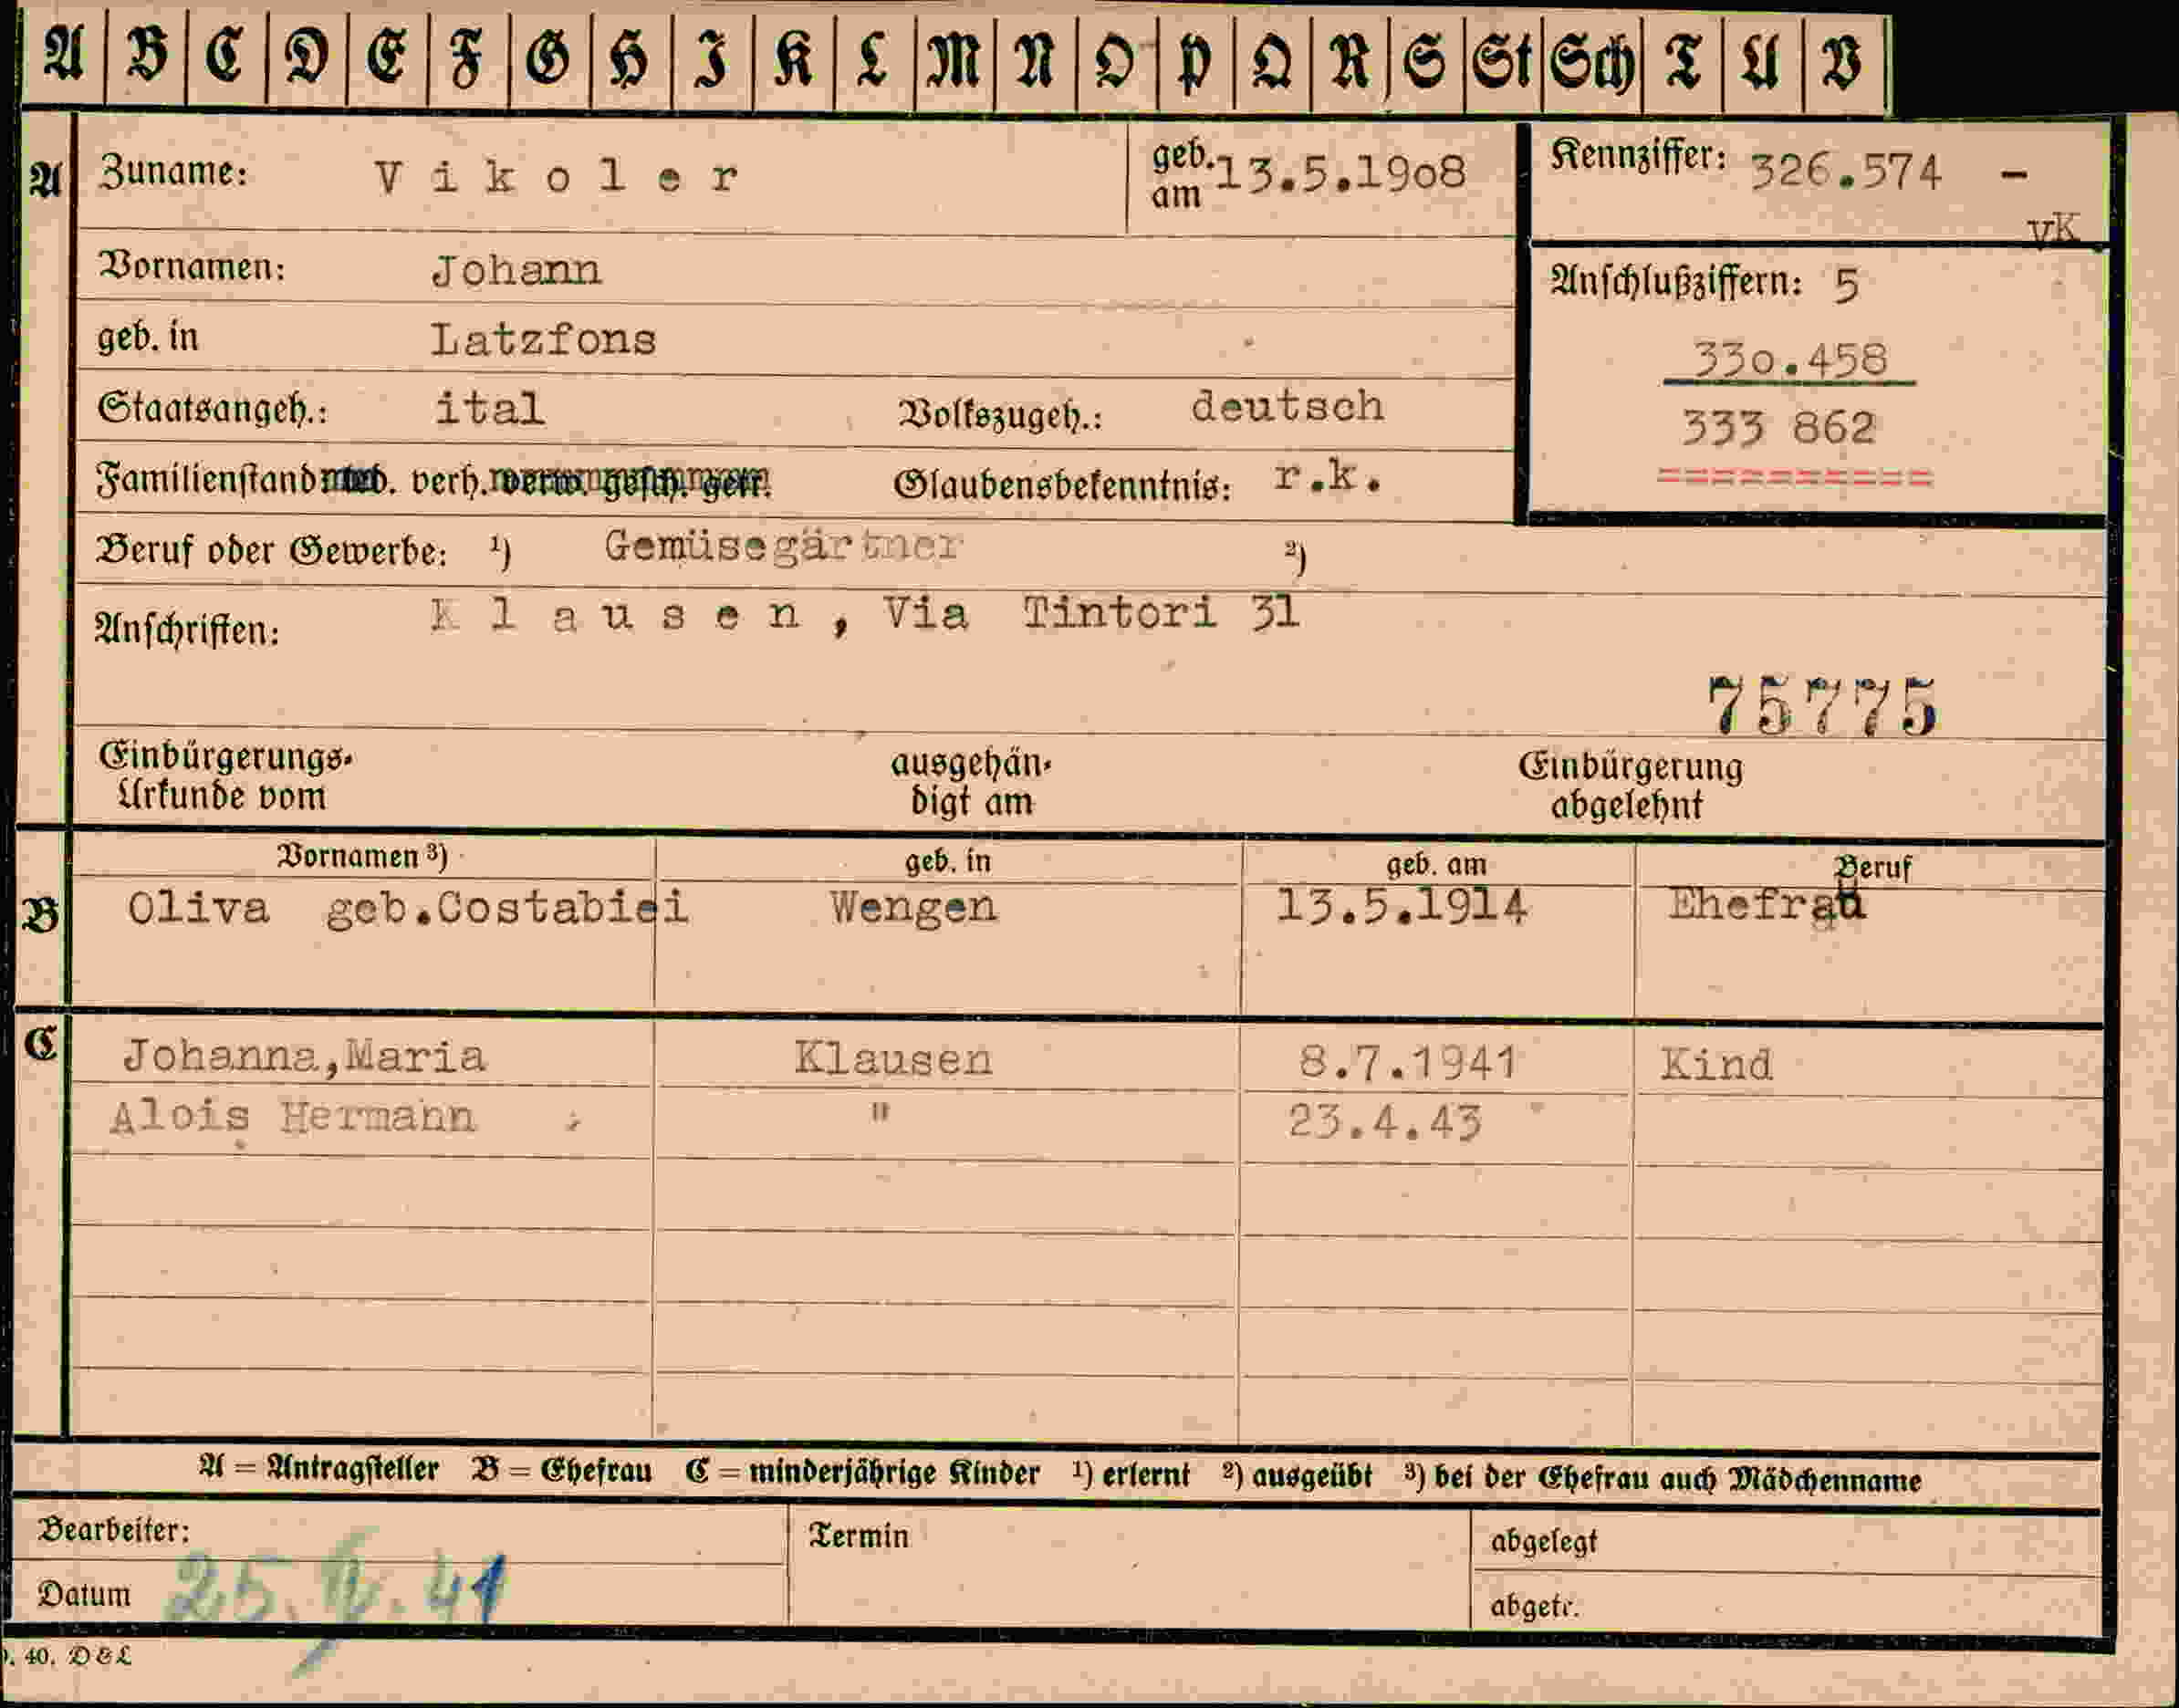 A B C D E F G H I K L M N O P Q R S St Sch T U V
A Zuname: Vikoler geb. am 13.5.1908 Kennziffer: 326.574 -
vK
Vornamen: Johann
Anschlußziffern: 5
geb. in Latzfons
330.458
Staatsangeh.: ital Volkszugeh.: deutsch
333 862
==========
Familienstand verh. Glaubensbekenntnis: r.k.
Beruf oder Gewerbe: ¹) Gemüsegärtner ²)
Anschriften: Klausen, Via Tintori 31
75775
Einbürgerungs- ausgehän- Einbürgerung
Urkunde vom digt am abgelehnt
Vornamen ³) geb. in geb. am Beruf
B Oliva geb. Wengen 13.5.1914 Ehefrau
C Johanna,Maria Klausen 8.7.1941 Kind
Alois Hermann " 23.4.43 "
A = Antragsteller B = Ehefrau C = minderjährige Kinder ¹) erlernt ²) ausgeübt ³) bei der Ehefrau auch Mädchenname
Bearbeiter: Termin abgelegt
Datum 25. 41 abgetr.
40. D&L